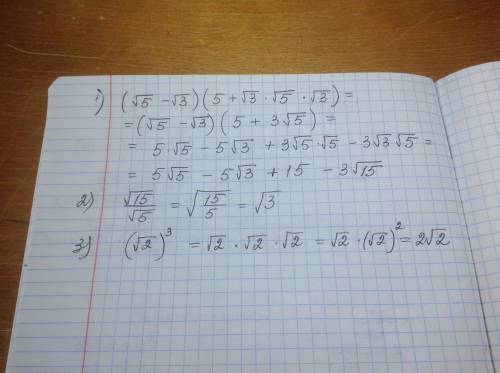 1) (√5 - √3)(5 + √3 · √5 · √3) =
= (√5 - √3) (5 + 3√5) =
= 5·√5 - 5√3 + 3√5·√5 - 3√3√5 =
= 5√5 - 5√3 + 15 - 3√15
2) √15/√5 = √(15/5) = √3
3) (√2)³ = √2 · √2 · √2 = √2 · (√2)² = 2√2